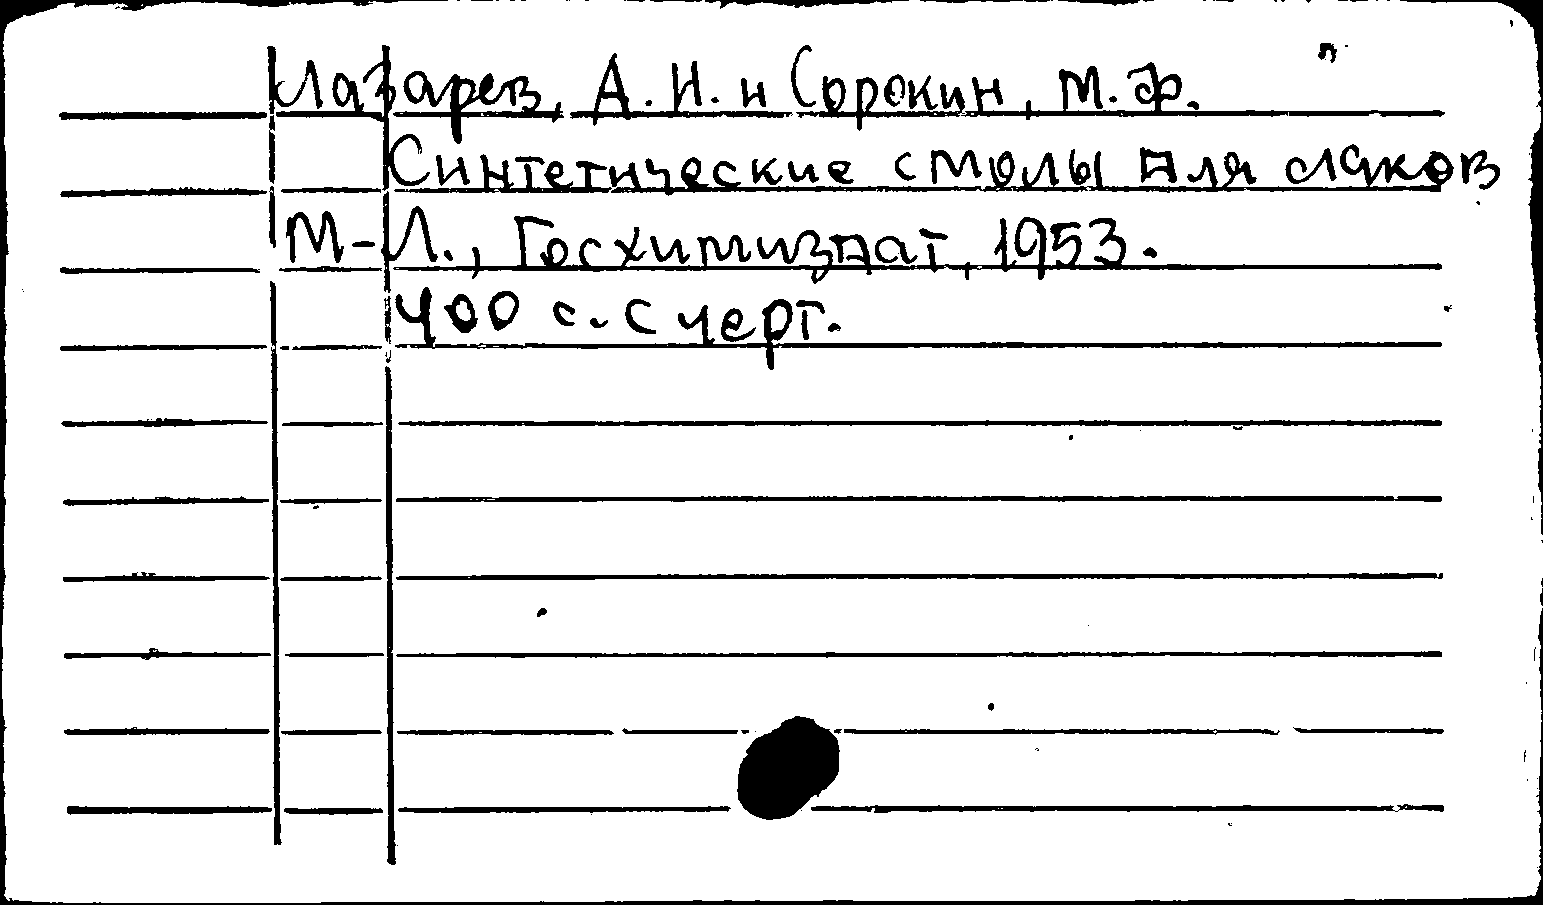 Лазарев, А. И. и Сорокин, М. Ф.
Синтетические смолы для лаков
М-Л., Госхимиздат, 1953.
400 с. с черт.